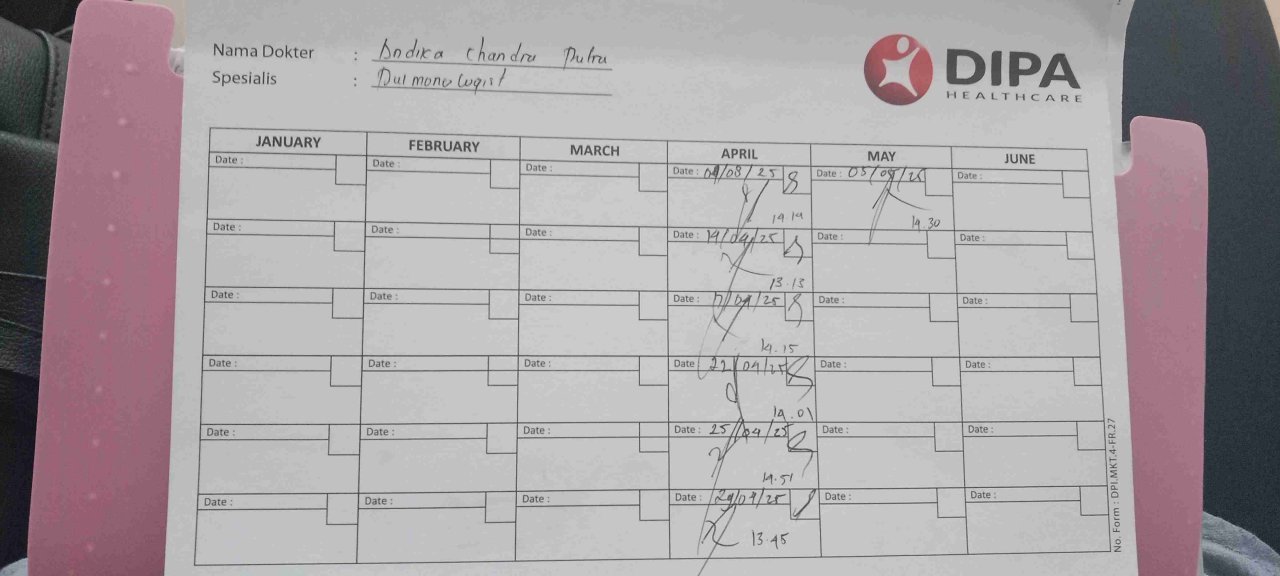 Nama Dokter : Andika Chandra Putra
Spesialis : Pulmonologist
DIPA
HEALTHCARE
JANUARY FEBRUARY MARCH APRIL MAY JUNE
Date : Date : Date : Date : 04/08/25 Date : 05/05/25 Date :
14.14 14.30
Date : Date : Date : Date : 14/04/25 Date : Date :
13.13
Date : Date : Date : Date : 17/04/25 Date : Date :
14.15
Date : Date : Date : Date : 22/04/25 Date : Date :
14.01
Date : Date : Date : Date : 25/04/25 Date : Date :
14.51
Date : Date : Date : Date : 29/04/25 Date : Date :
13.45
No. Form : DPI.MKT.4-FR.27